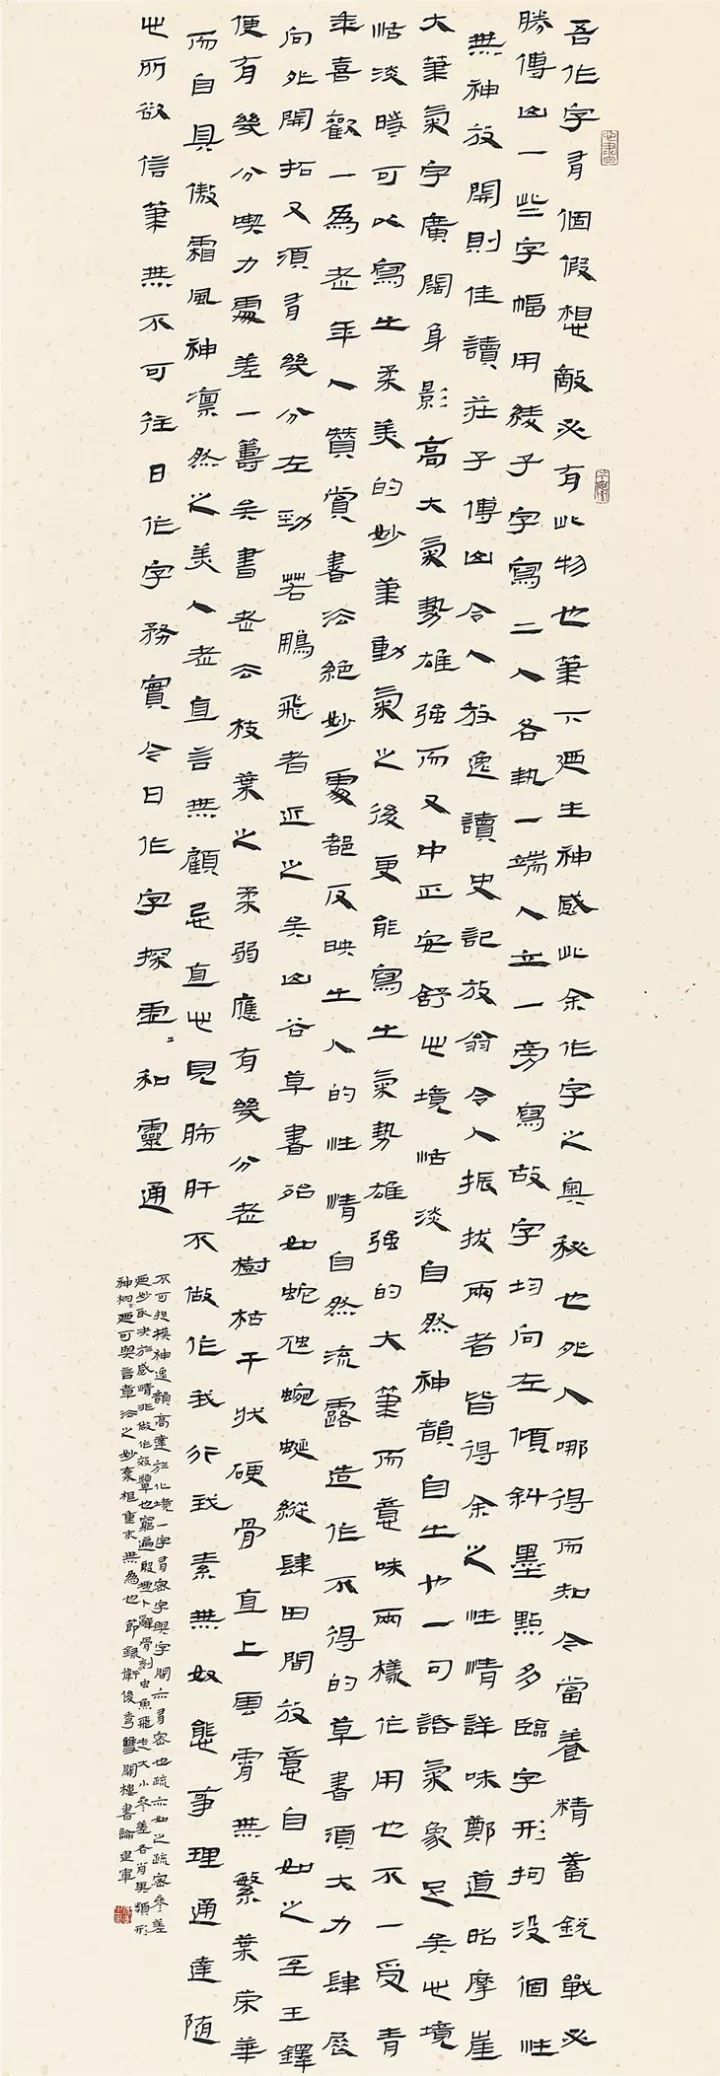 吾作字有個假想敵必有此物也筆下廼生神感此余作字之奥秘也他人哪得而知今當養精蓄銳戰必
勝傅山一些字幅用綾子字寫二人各執一端人立一旁寫故字均向左傾斜墨點多臨字形拘没個性
無神放開則佳讀莊子傅山令人放逸讀史記放翁令人振拔兩者皆得余之性情詳味鄭道昭摩崖
大筆氣字廣闊身影高大氣勢雄强而又中正安舒之境恬淡自然神韻自出也一句話氣象足矣之境
恬淡時可以寫出柔美的妙筆動氣之後更能寫出氣勢雄强的大筆而意味兩樣作用也不一受青
年喜歡一為老年人贊賞書法絕妙處都反映出人的性情自然流露造作不得的草書須大力肆展
向外開拓又須有幾分左勁若鵬飛者近之矣山谷草書殆如蛇虺蜿蜒縱肆田間放意自如之至王鐸
便有幾分喫力處差一籌矣書老方枝葉之柔弱應有幾分老樹枯干狀硬骨直上雲霄無繁葉榮華
而自具傲霜風神凛然之美人老直言無顧忌直也見肺肝不做作我行我素無奴態事理通達随
心所欲信筆無不可往日作字務實今日作字探虚虚和靈通
不可想模神逸韻高達於化境一字有密字與字間亦有密也疏亦如之疏密參差
廼妙取决於感情非做作效顰也窮遍殷墟卜辭骨刻虫魚飛走大小參差各肖異類形
神榾廼可與言章法之妙豪相重求無為也 節録衛俊秀雙開樓書論 建軍